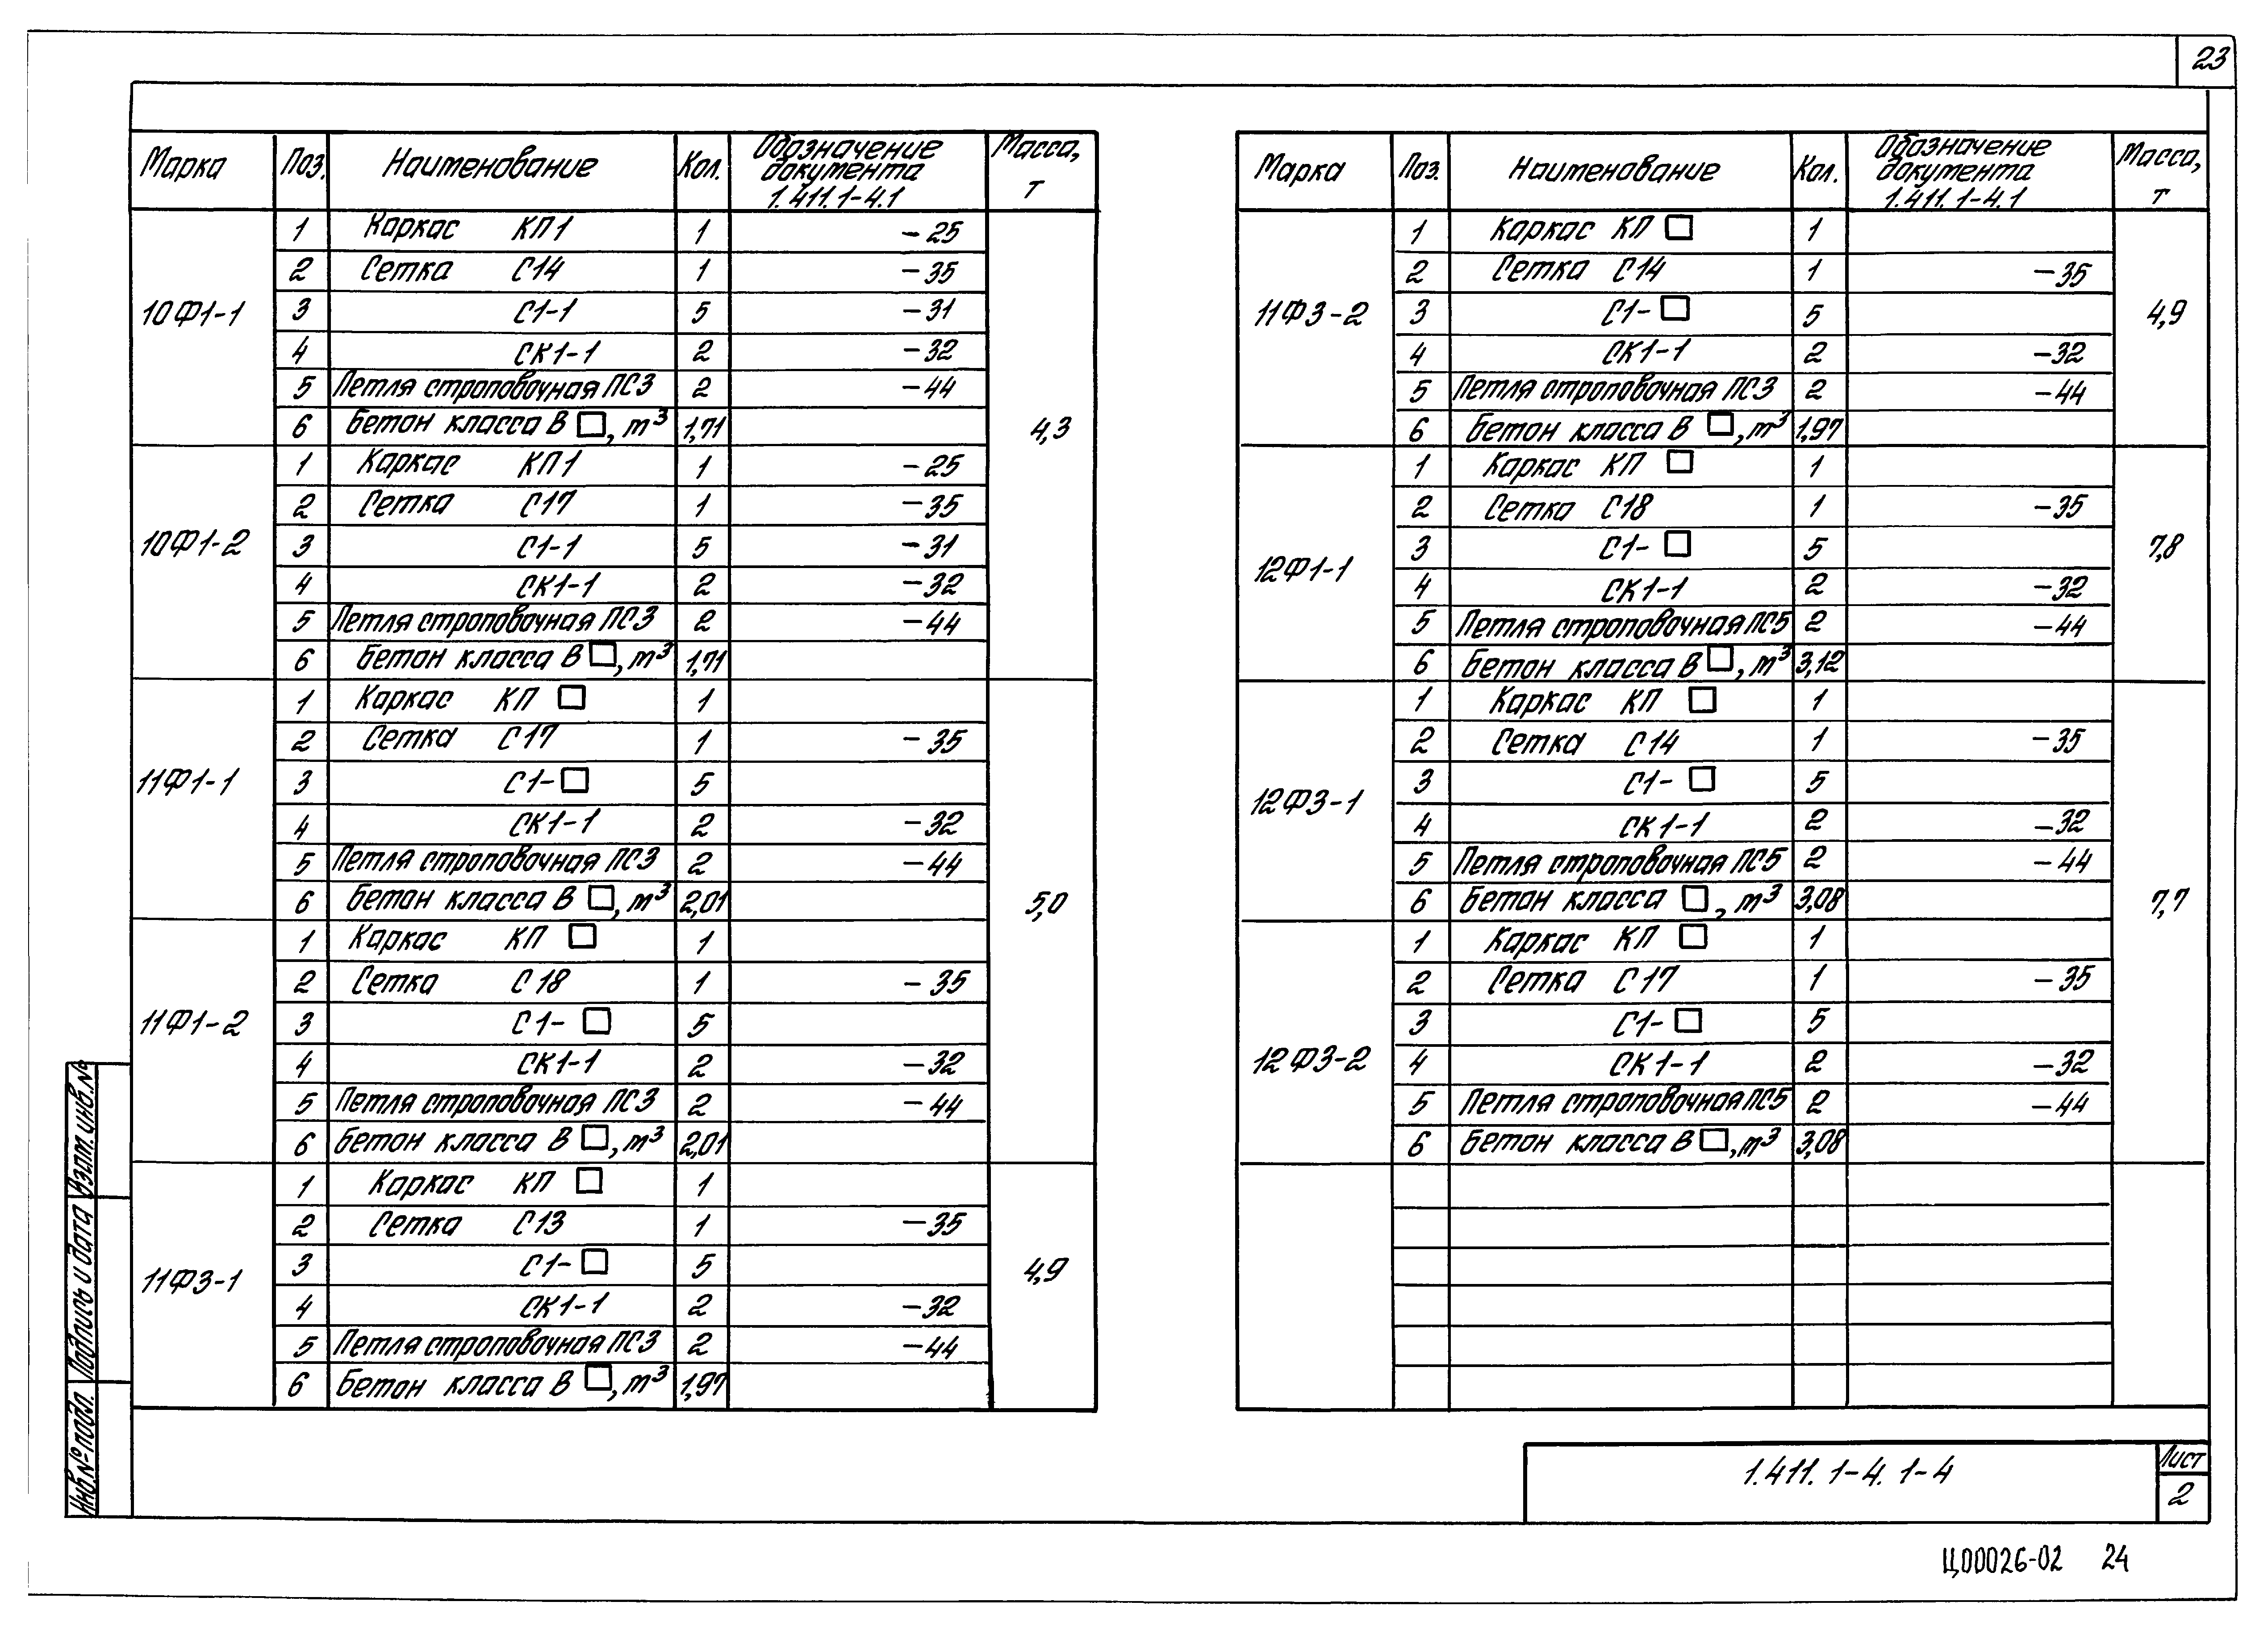 23
Марка Поз. Наименование Кол. Обозначение документа 1.411.1-4.1 Масса, т
10Ф1-1 4,3
1 Каркас КП1 1 -25
2 Сетка С14 1 -35
3 С1-1 5 -31
4 СК1-1 2 -32
5 Петля строповочная ПС3 2 -44
6 Бетон класса В □, м³ 1,71
10Ф1-2
1 Каркас КП1 1 -25
2 Сетка С17 1 -35
3 С1-1 5 -31
4 СК1-1 2 -32
5 Петля строповочная ПС3 2 -44
6 Бетон класса В □, м³ 1,71
11Ф1-1 5,0
1 Каркас КП □ 1
2 Сетка С17 1 -35
3 С1-□ 5
4 СК1-1 2 -32
5 Петля строповочная ПС3 2 -44
6 Бетон класса В □, м³ 2,01
11Ф1-2
1 Каркас КП □ 1
2 Сетка С18 1 -35
3 С1-□ 5
4 СК1-1 2 -32
5 Петля строповочная ПС3 2 -44
6 Бетон класса В □, м³ 2,01
11Ф3-1 4,9
1 Каркас КП □ 1
2 Сетка С13 1 -35
3 С1-□ 5
4 СК1-1 2 -32
5 Петля строповочная ПС3 2 -44
6 Бетон класса В □, м³ 1,97
Марка Поз. Наименование Кол. Обозначение документа 1.411.1-4.1 Масса, т
11Ф3-2 4,9
1 Каркас КП □ 1
2 Сетка С14 1 -35
3 С1-□ 5
4 СК1-1 2 -32
5 Петля строповочная ПС3 2 -44
6 Бетон класса В □, м³ 1,97
12Ф1-1 7,8
1 Каркас КП □ 1
2 Сетка С18 1 -35
3 С1-□ 5
4 СК1-1 2 -32
5 Петля строповочная ПС5 2 -44
6 Бетон класса В □, м³ 3,12
12Ф3-1 7,7
1 Каркас КП □ 1
2 Сетка С14 1 -35
3 С1-□ 5
4 СК1-1 2 -32
5 Петля строповочная ПС5 2 -44
6 Бетон класса □, м³ 3,08
12Ф3-2
1 Каркас КП □ 1
2 Сетка С17 1 -35
3 С1-□ 5
4 СК1-1 2 -32
5 Петля строповочная ПС5 2 -44
6 Бетон класса В □, м³ 3,08
Инв.№ подл. Подпись и дата Взам. инв.№
1.411.1-4.1-4
Лист
2
Ц00026-02 24